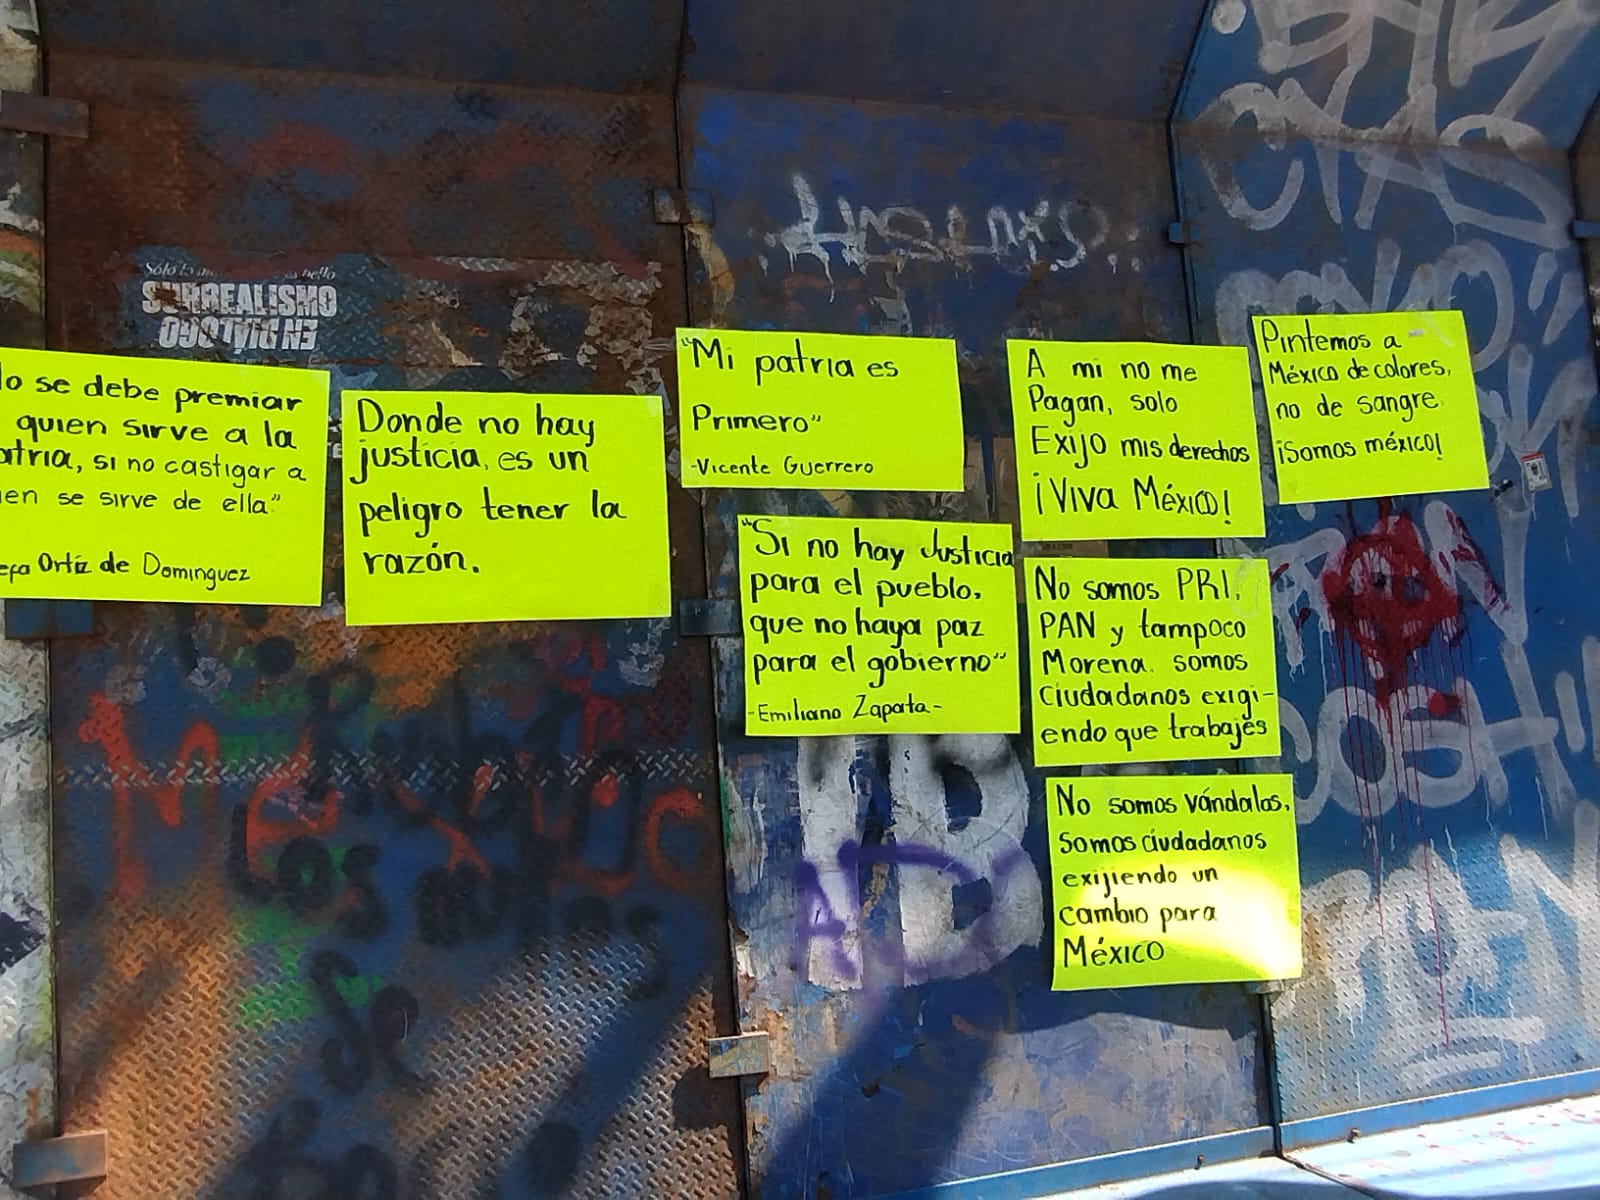 Sólo lo
bello
SURREALISMO
EN DIÁLOGO
No se debe premiar
quien sirve a la
atria, si no castigar a
en se sirve de ella"
efa Ortíz de Dominguez
Donde no hay
justicia, es un
peligro tener la
razón.
"Mi patria es
Primero"
-Vicente Guerrero
"Si no hay Justicia
para el pueblo,
que no haya paz
para el gobierno"
-Emiliano Zapata-
A mi no me
Pagan, solo
Exijo mis derechos
¡Viva México!
No somos PRI,
PAN y tampoco
Morena. somos
Ciudadanos exigi-
endo que trabajes
No somos vándalos,
Somos ciudadanos
exijiendo un
cambio para
México
Pintemos a
México de colores,
no de sangre.
¡Somos méxico!
México
Los
se